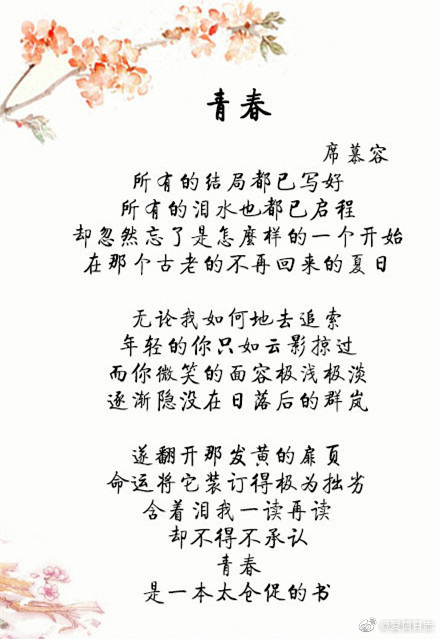 青春
席慕容
所有的结局都已写好
所有的泪水也都已启程
却忽然忘了是怎麽样的一个开始
在那个古老的不再回来的夏日
无论我如何地去追索
年轻的你只如云影掠过
而你微笑的面容极浅极淡
逐渐隐没在日落后的群岚
遂翻开那发黄的扉页
命运将它装订得极为拙劣
含着泪我一读再读
却不得不承认
青春
是一本太仓促的书